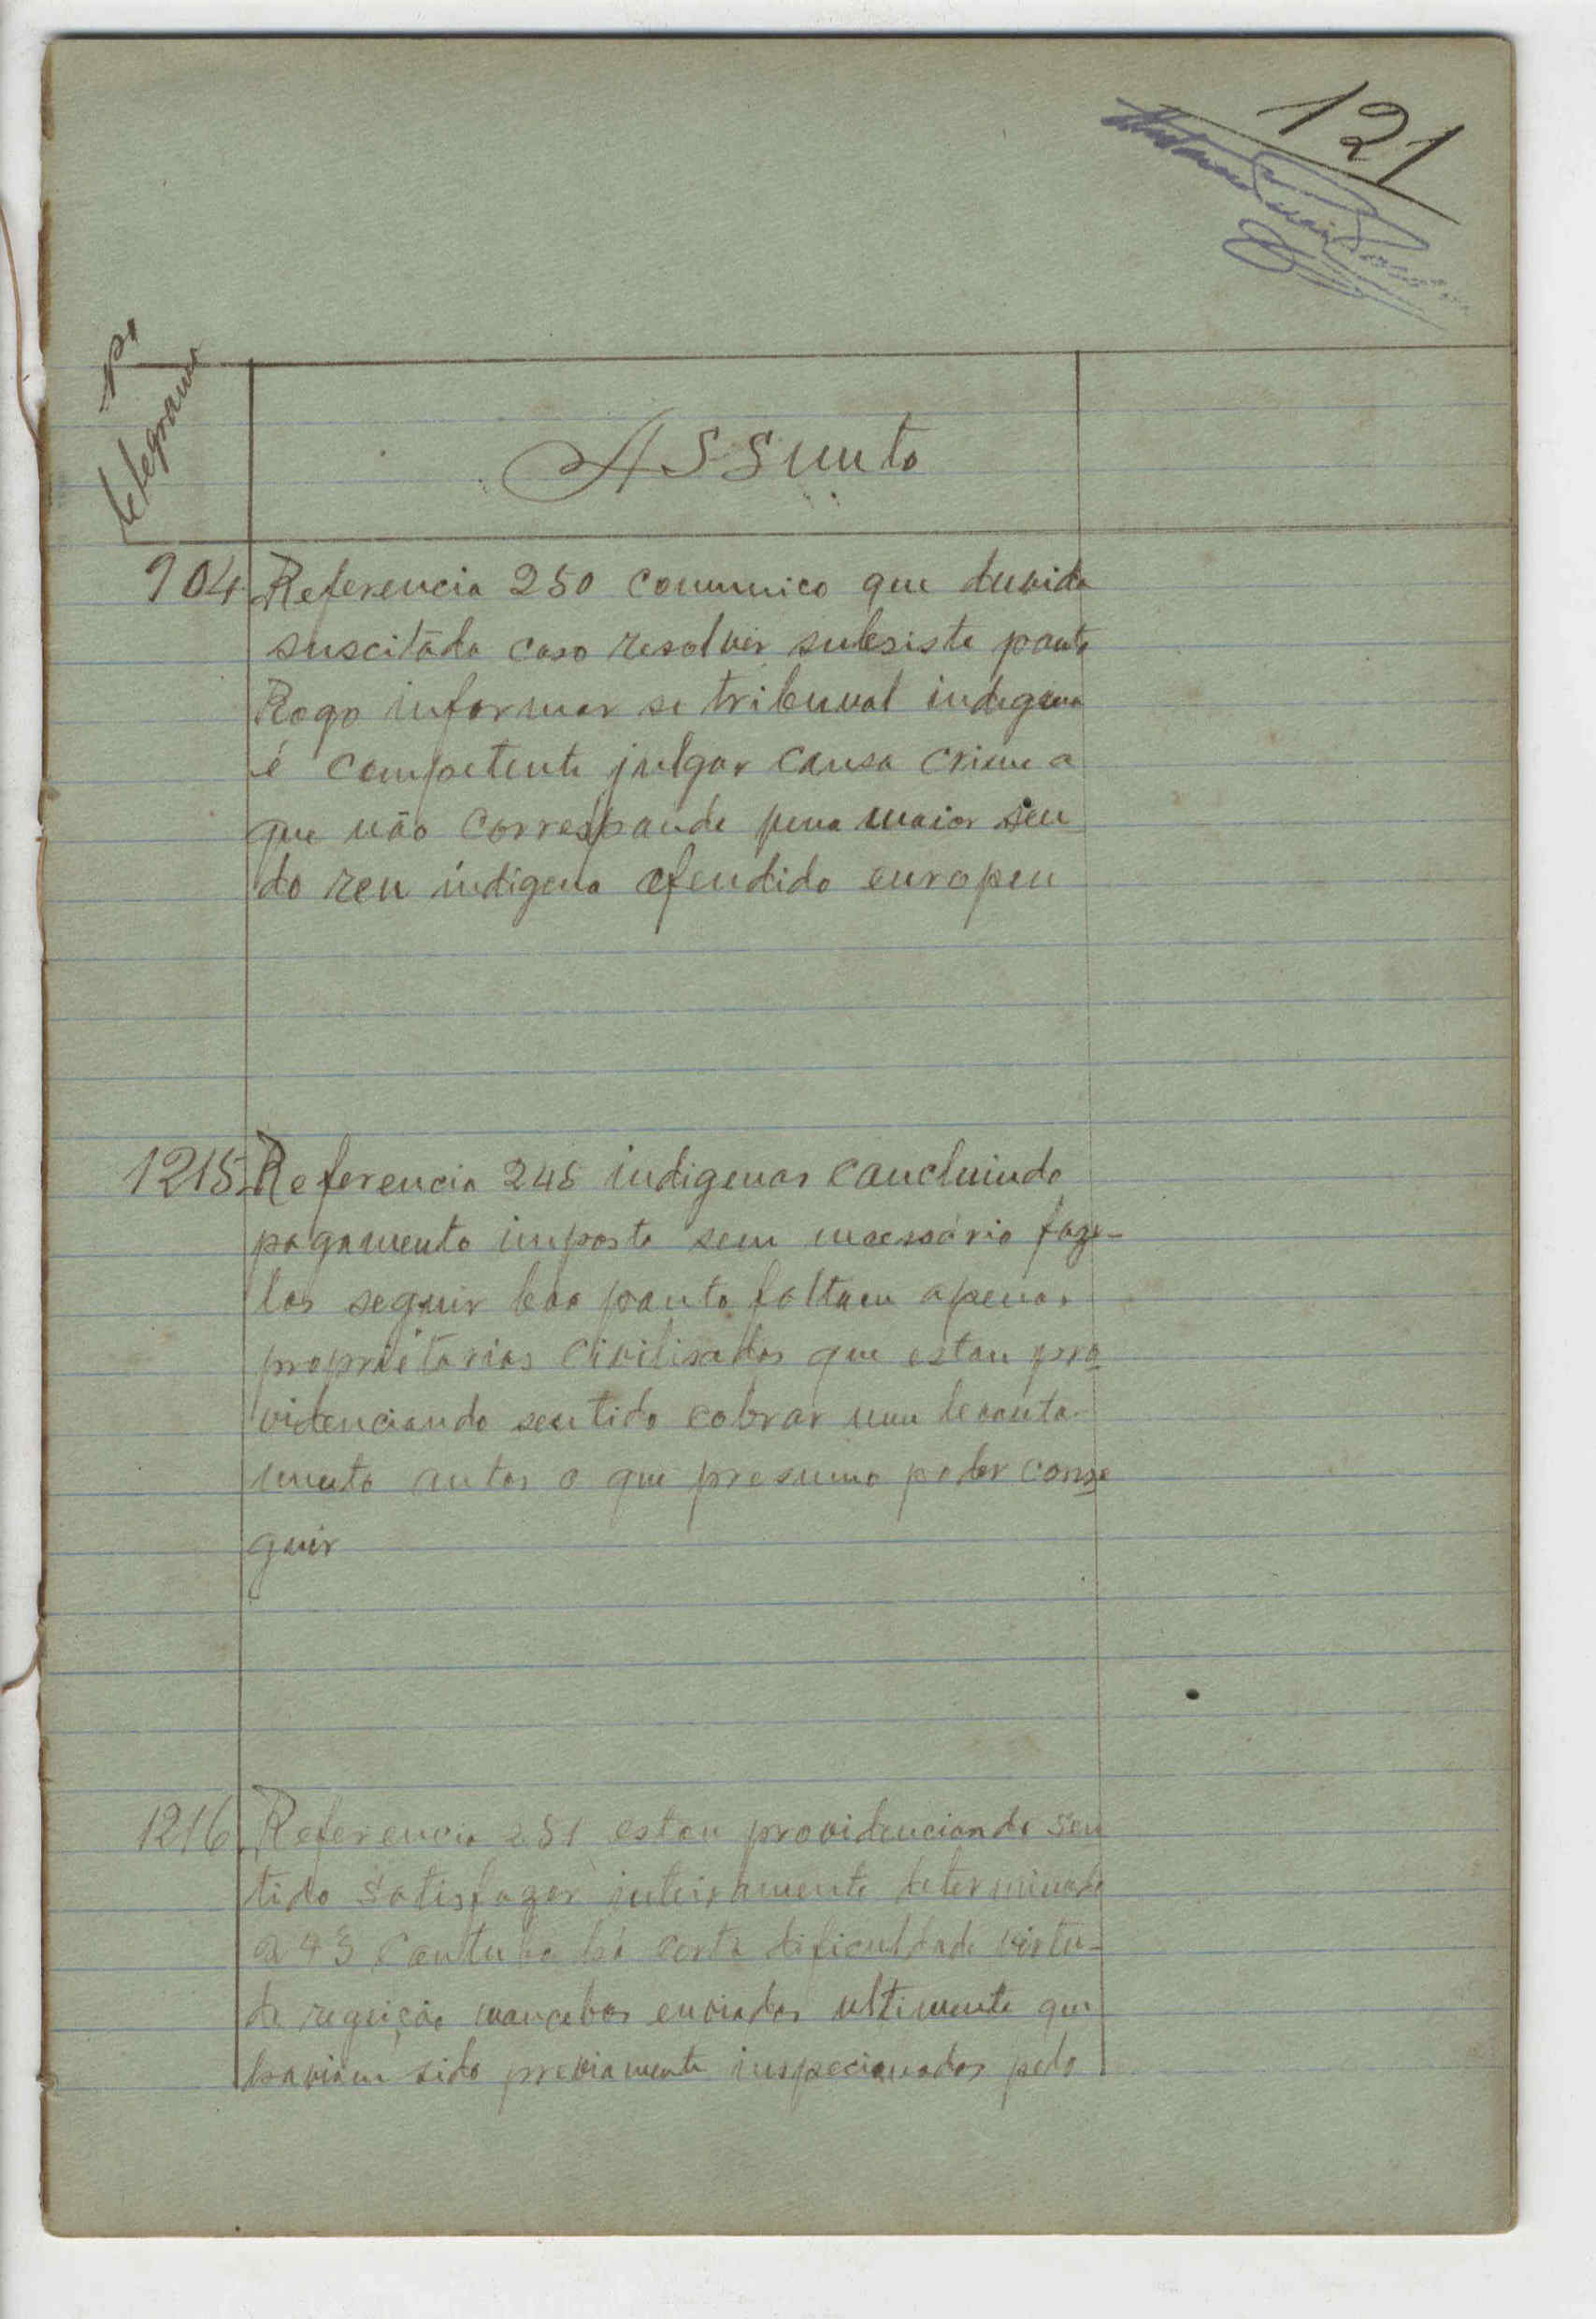 121
Nº
telegrama
Assunto
904 Referencia 250 comunico que duvida
suscitada caso resolver subsiste ponto
Rogo informar se tribunal indigena
é competente julgar causa crime a
que não corresponde pena maior sen
do reu indigena ofendido europeu
1215 Referencia 245 indigenas concluindo
pagamento imposto sem necessário faze-
los seguir boo ponto faltam apenas
proprietarios civilisados que estou pro
videnciando sentido cobrar sem levanta-
mento autos o que presumo poder conse
guir
1216 Referencia 251 estou providenciando sen
tido satisfazer inteiramente determinado
243 há certa dificuldade virtu-
de regeição mancebos enviados ultimente que
haviam sido previamente inspecionados pelo